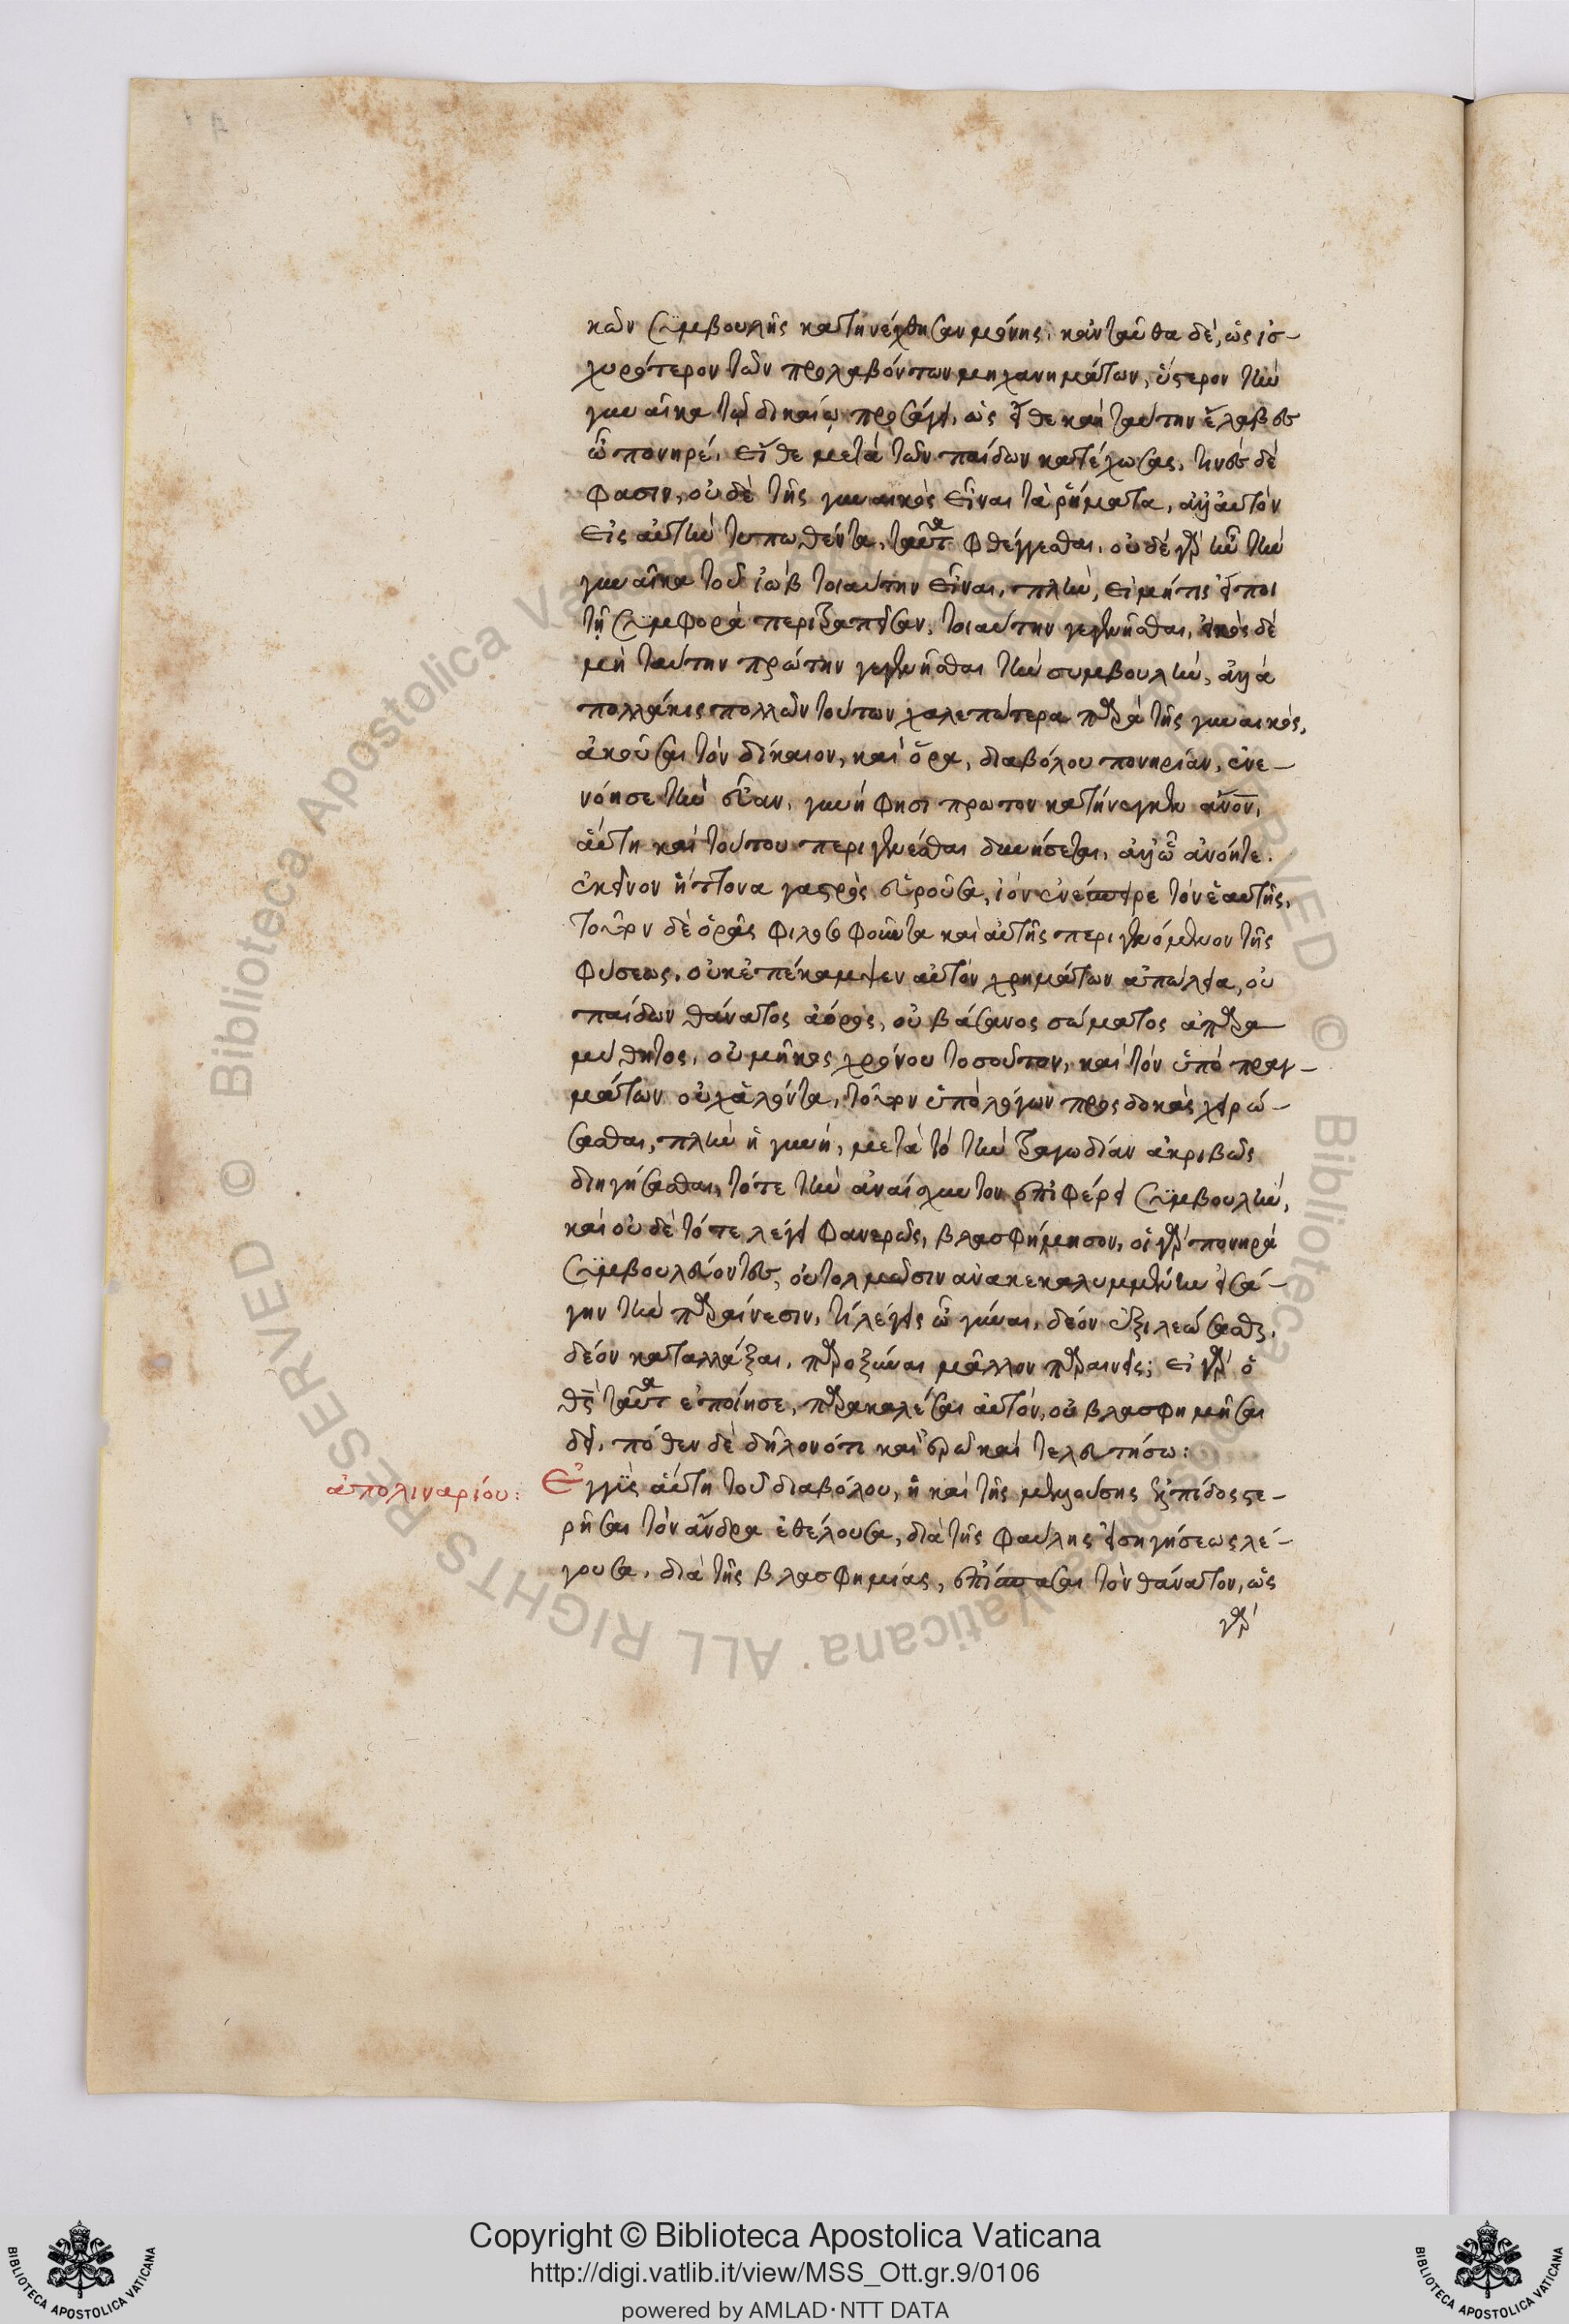 κῶν συμβουλῆς κατηνέχθησαν μόνης. κἀνταῦθα δέ, ὡς ἰσ-
χυρότερον τῶν προλαβόντων μηχανημάτων, ὕστερον τὴν
γυναῖκα τῷ δικαίῳ προσάγει. ὡς εἴθε καὶ ταύτην ἔλαβες
ὦ πονηρέ, εἴθε μετὰ τῶν παίδων κατέχωσας. τινὲς δέ
φασιν, οὐδὲ τῆς γυναικὸς εἶναι τὰ ῥήματα, ἀλλ' αὐτὸν
εἰς αὐτὴν τυπωθέντα, ταῦτα φθέγγεσθαι. οὐδὲ γὰρ ἦν τὴν
γυναῖκα τοῦ ἰὼβ τοιαύτην εἶναι, πλὴν, εἰ μή τις εἴποι
τῇ συμφορᾷ περιτραπεῖσαν, τοιαύτην γεγενῆσθαι. εἰκὸς δὲ
μὴ ταύτην πρώτην γεγενῆσθαι τὴν συμβουλὴν, ἀλλὰ
πολλάκις πολλῶν τούτων χαλεπώτερα παρὰ τῆς γυναικὸς,
ἀκοῦσαι τὸν δίκαιον, καὶ ὅρα, διαβόλου πονηρίαν, ἐνε-
νόησε τὴν εὔαν, γυνή φησι πρῶτον κατήνεγκεν ἄνον,
αὕτη καὶ τούτου περιγενέσθαι δυνήσεται, ἀλλ' ὦ ἀνόητε.
ἐκεῖνον ἥττονα γαστρὸς εὑροῦσα, ἰὸν ἐνέσπειρε τὸν ἑαυτῆς,
τοῦτον δὲ ὁρᾷς φιλοσοφοῦντα καὶ αὐτῆς περιγενόμενον τῆς
φύσεως. οὐκ ἐπέκαμψεν αὐτὸν χρημάτων ἀπώλεια, οὐ
παίδων θάνατος ἄορος, οὐ βάσανος σώματος ἀπαρα
μύθητος, οὐ μῆκος χρόνου τοσοῦτον, καὶ τὸν ὑπὸ πραγ-
μάτων οὐχ ἁλόντα, τοῦτον ὑπὸ λόγων προσδοκᾷς χειρώ-
σασθαι, πλὴν ἡ γυνή, μετὰ τὸ τὴν τραγωδίαν ἀκριβῶς
διηγήσασθαι, τότε τὴν ἀναίσχυντον ἐπιφέρει συμβουλὴν,
καὶ οὐδὲ τότε λέγει φανερῶς, βλασφήμησον, οἱ γὰρ πονηρὰ
συμβουλεύοντες, οὐ τολμῶσιν ἀνακεκαλυμμένην εἰσά-
γην τὴν παραίνεσιν. τί λέγεις ὦ γύναι, δέον ἐξιλεώσασθαι,
δέον καταλλάξαι, παροξῦναι μᾶλλον παραινεῖς; εἰ γὰρ ὁ
θς ταῦτα ἐποίησε, παρακαλέσαι αὐτὸν, οὐ βλασφημῆσαι
δεῖ. πόθεν δὲ δῆλον ὅτι καὶ ἐρῶ καὶ τελευτήσω:
ἀπολιναρίου: Ἐγγὺς αὕτη τοῦ διαβόλου, ἡ καὶ τῆς μενούσης ἐλπίδος στε-
ρῆσαι τὸν ἄνδρα ἐθέλουσα, διὰ τῆς φαύλης εἰσηγήσεως λέ-
γουσα. διὰ τῆς βλασφημίας, ἐπίσπασαι τὸν θάνατον, ὡς
γὰρ